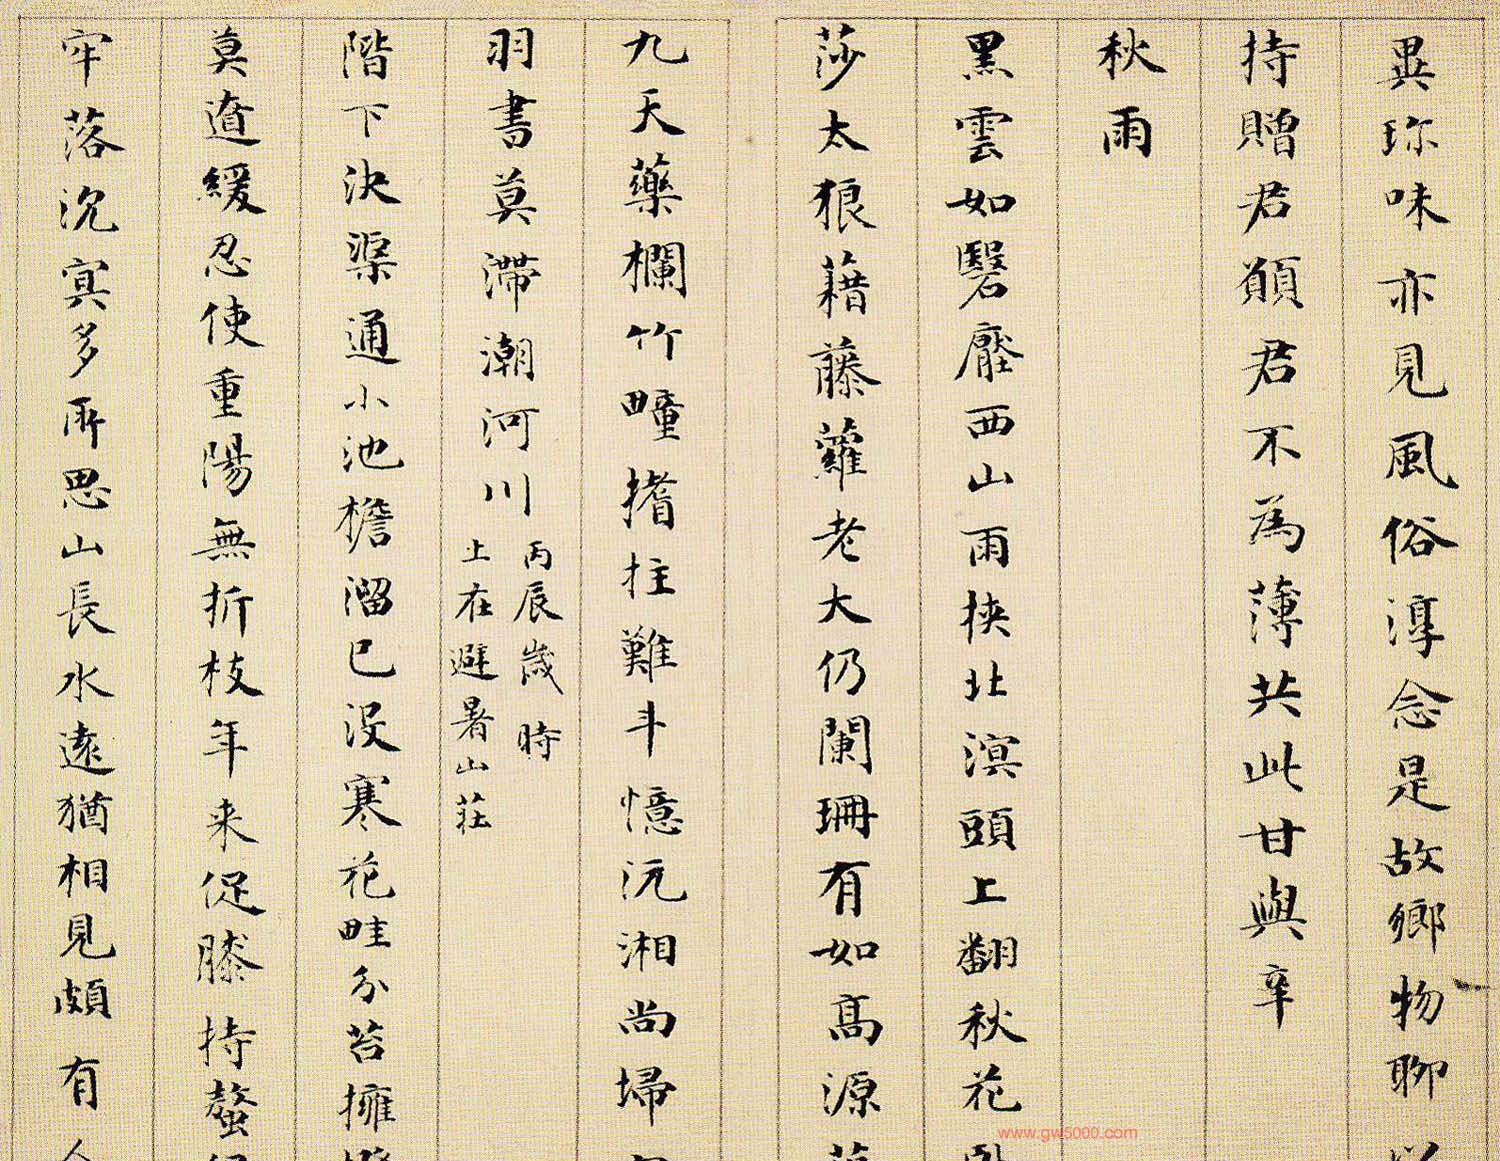 異珎味亦見風俗淳念是故鄉物聊
持贈君願君不為薄共此甘與辛
秋雨
黑雲如翳壓西山雨挾北溟頭上翻秋花
莎太狼藉藤蘿老大仍闌珊有如高源
九天藥欄竹疃搘拄難斗憶沅湘尚埽
羽書莫滯潮河川
丙辰歲時
上在避暑山莊
階下決渠通小池檐溜已沒寒花畦分苔擁
莫遒緩忍使重陽無折枝年来促膝持螯
牢落沉冥多所思山長水遠猶相見頗有
www.gw5000.com